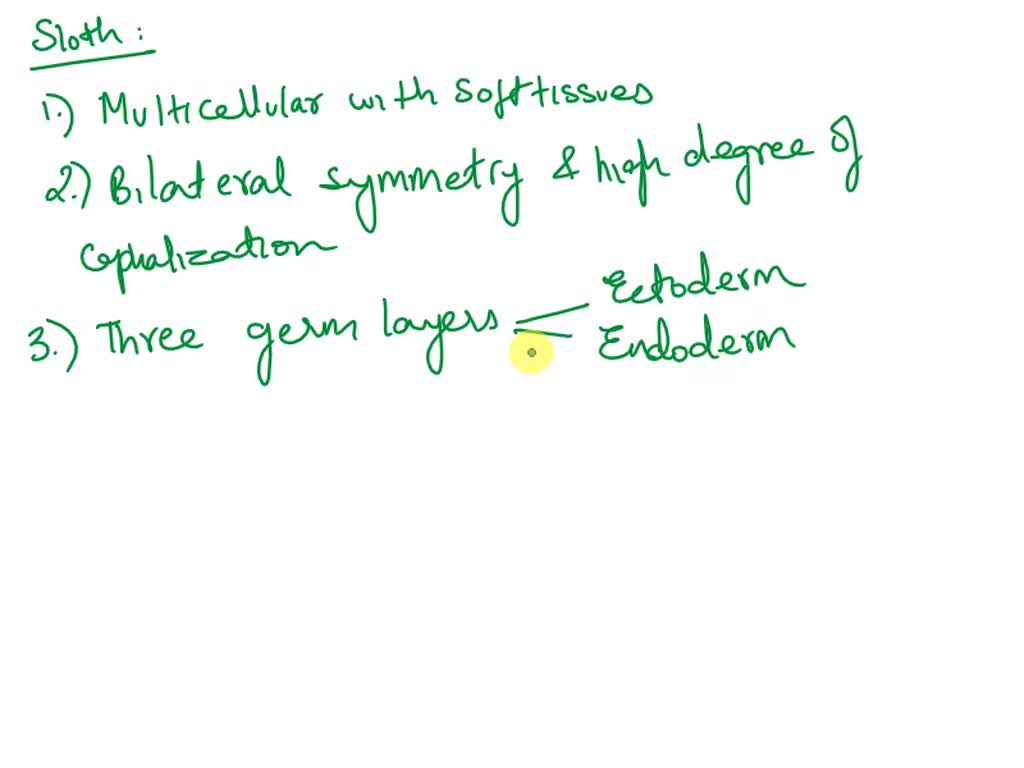 Sloth :
1.) Multicellular with soft tissues
2.) Bilateral symmetry & high degree of
Cephalization
3.) Three germ layers
Ectoderm
Endoderm